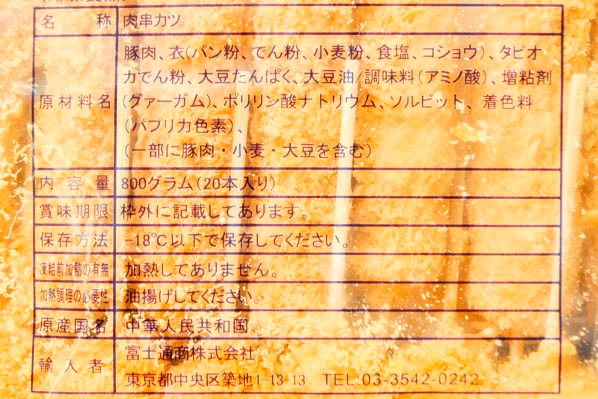 名称 肉串カツ
豚肉、衣(パン粉、でん粉、小麦粉、食塩、コショウ)、タピオ
カでん粉、大豆たんぱく、大豆油/調味料(アミノ酸)、増粘剤
原材料名 (グァーガム)、ポリリン酸ナトリウム、ソルビット、着色料
(パプリカ色素)、
(一部に豚肉・小麦・大豆を含む)
内容量 800グラム(20本入り)
賞味期限 枠外に記載してあります。
保存方法 -18℃以下で保存してください。
凍結前加熱の有無 加熱してありません。
加熱調理の必要性 油揚げしてください。
原産国名 中華人民共和国
輸入者 富士通商株式会社
東京都中央区築地1-13-13 TEL:03-3542-0242